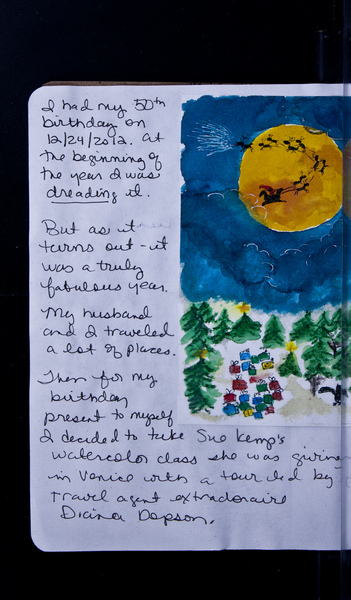 I had my 50th
birthday on
12/24/2012. At
the beginning of
the year I was
dreading it.
But as it
turns out - it
was a truly
fabulous year.
My husband
and I traveled
a lot of places.
Then for my
birthday
present to myself
I decided to take Sue Kemp's
watercolor class she was giving
in Venice with a tour led by
travel agent extradonaire
Diana Dopson.